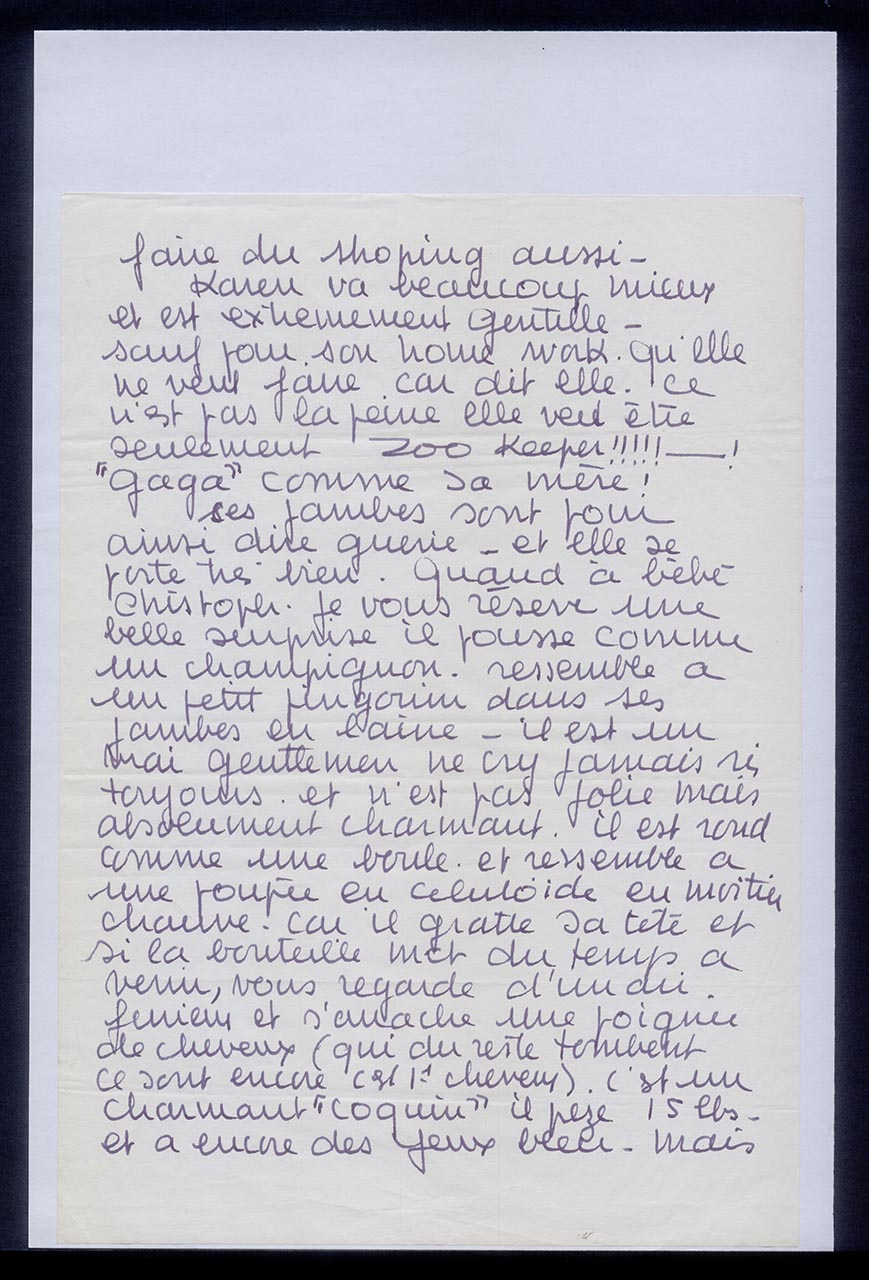 faire du shoping aussi —
Karen va beaucoup mieux
et est extremement gentille —
sauf pour son home work. qu'elle
ne veut faire car dit elle. ce
n'est pas la peine elle veut être
seulement Zoo Keeper!!!!! — !
"gaga" comme sa mère!
ses jambes sont pour
ainsi dire guerie — et elle se
porte très bien. Quand à bébé
Christoph. je vous réserve une
belle surprise il pousse comme
un champignon. ressemble a
un petit pingouin dans ses
jambes en laine — il est un
vrai gentlemen ne cry jamais ris
toujours. et n'est pas jolie mais
absolument charmant. il est rond
comme une boule. et ressemble a
une poupée en celuloïde en moitié
chauve. car il gratte sa tete et
si la bouteille met du temps a
venir, vous regarde d'un
furieux et s'arrache une poignée
de cheveux (qui du reste tombent
ce sont encore 1er cheveux). c'est un
charmant "coquin" il peze 15 lbs —
et a encore des yeux bleu — mais